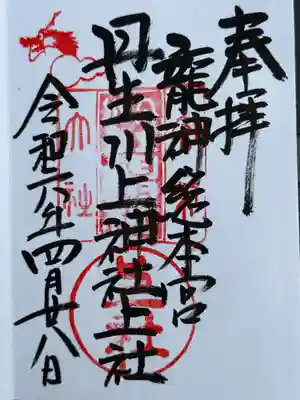 奉拝
龍神総本宮
丹生川上神社上社
令和六年四月廿八日
大社